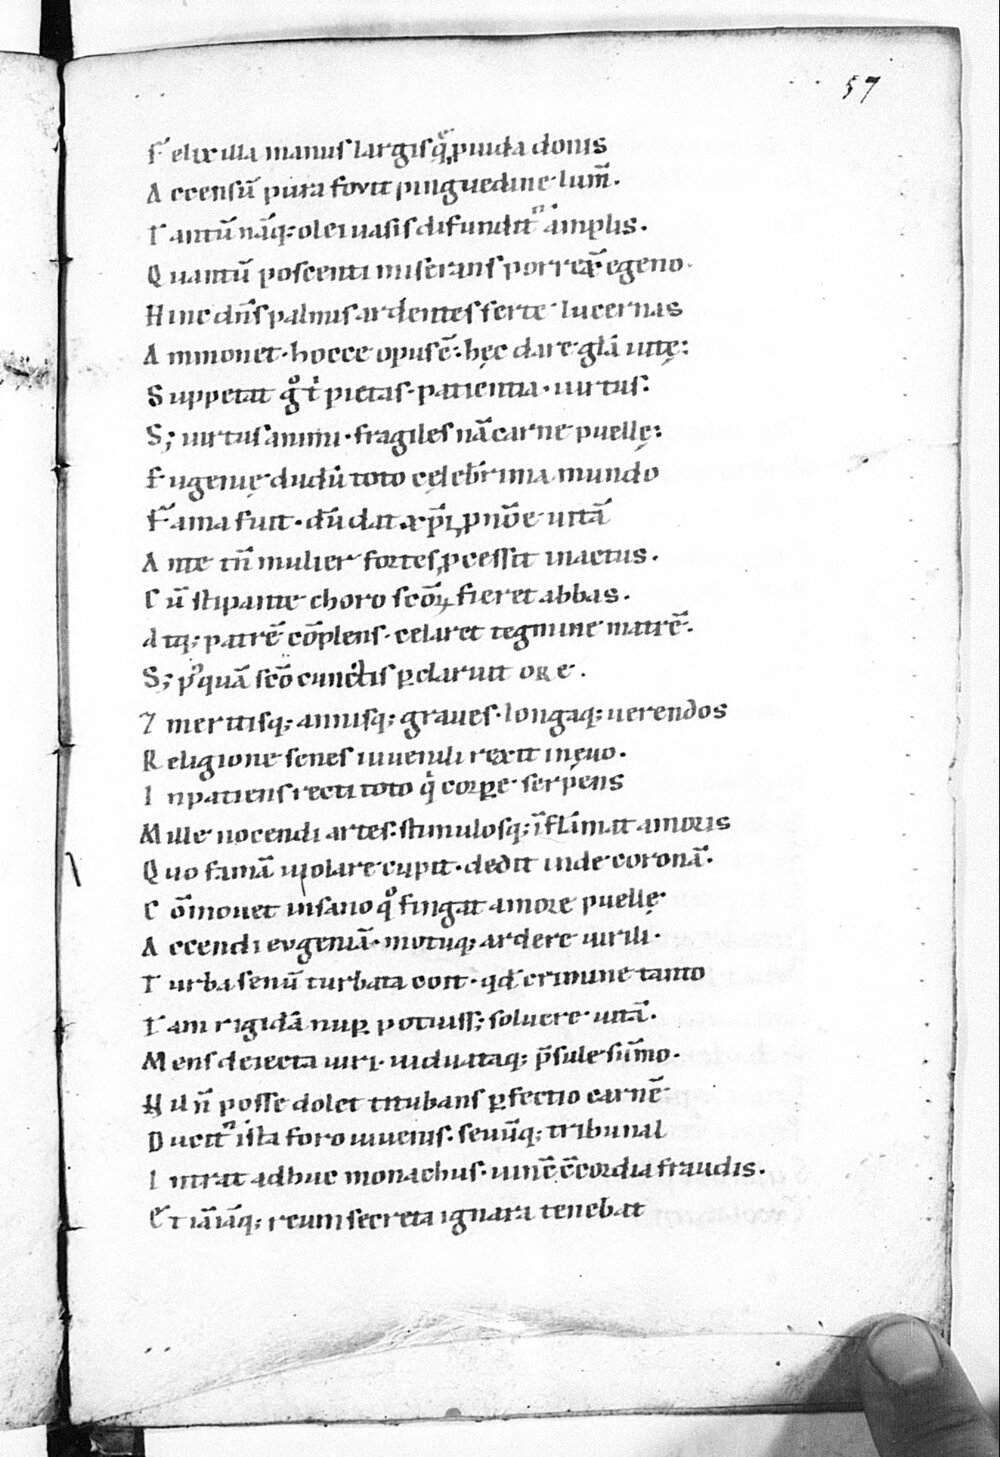 57
Felix illa manus largisq; ꝓuida donis
Accensū pura fovit pinguedine lum̄.
Tantū nāq; olei uasis difundit᷑ amplis.
Quantū poscenti miserans porrex̄ egeno.
Hinc dn̄s palmis ardentes ferre lucernas
Ammonet. hocce opus ē. hęc dare glā uitę:
Suppetat g̊ t̍ pietas. patientia. uirtus:
S; uirtus animi. fragiles nā carne puellę:
Eugenię dudū toto cęleb̄rima mundo
Fama fuit. dū dat xp̄i, ꝓ nōe uitā
Ante tn̄ mulier fortes ꝓcessit in actus.
Cū stipante choro scōꝝ fieret abbas.
Atq; patrē cōplens. celaret tegmine matrē.
S; p̊quā scō cunctis p̱claruit ore.
7 meritisq; annisq; graues. longaq; uerendos
Religione senes iuuenili rexit in ęuo.
Inpatiens recti toto q̍ corꝑe serpens
Mille nocendi artes. stimulosq; īflāmat amoris
Quo famā uiolare cupit. dedit inde coronā.
Cōmouet insano q̊ fingat amore puellę
Accendi eugeniā. motuq; ardere uirili.
Turba senū turbata coit. qd̄ crimine tanto
Tam rigidā nuꝑ potuiss; soluere uitā.
Mens deiecta uiri. uiduataq; p̄sule sūmo.
Nil n̄ posse dolet titubans ꝑfectio carnē
Ducit᷑ ista foro iuuenis. seuūq; tribunal
Intrat adhuc monachus. uincē ēcordia fraudis.
Et iāiāq; reum secreta ignara tenebat